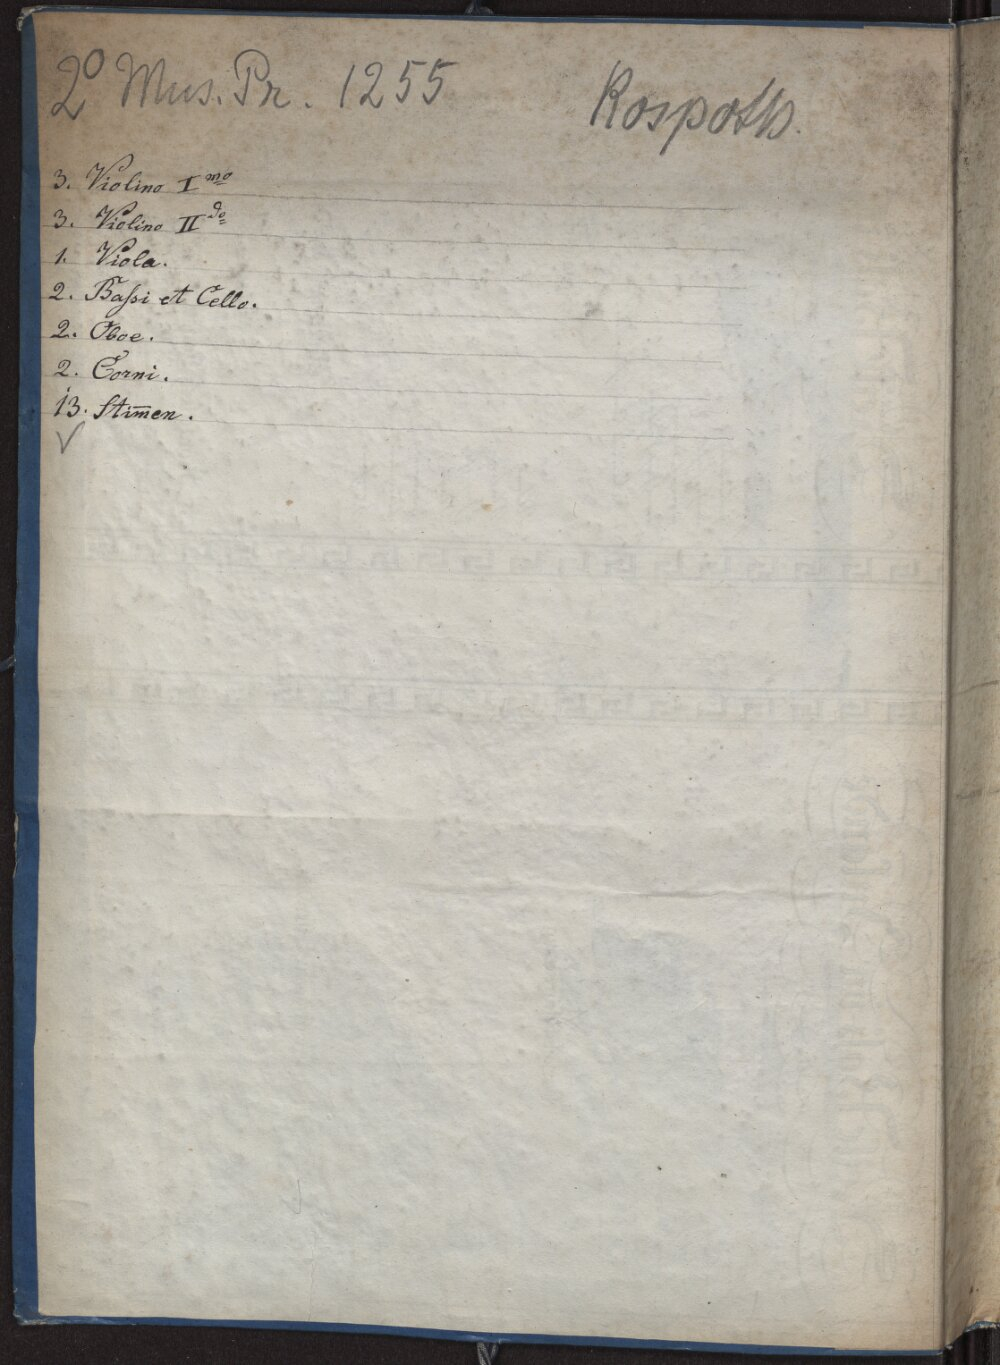 2⁰ Mus. Pr. 1255 Rospoth.
3. Violino Iᵐᵒ
3. Violino IIᵈᵒ
1. Viola.
2. Baſsi et Cello.
2. Oboe.
2. Corni.
13. Stim̄en.